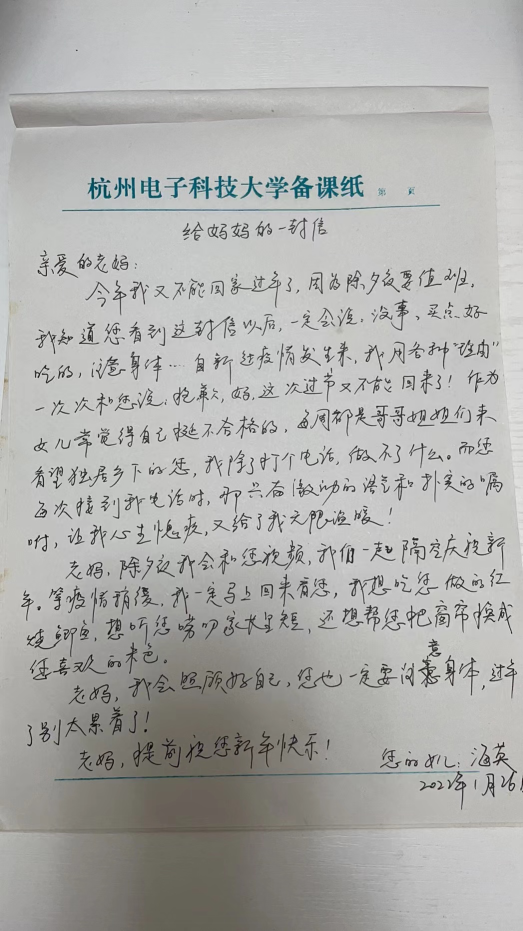 杭州电子科技大学备课纸 第 页
给妈妈的一封信
亲爱的老妈：
今年我又不能回家过年了，因为除夕夜要值班。
我知道您看到这封信以后，一定会说：没事，买点好
吃的，注意身体…自新冠疫情发生来，我用各种“理由”
一次次和您说：抱歉，妈，这次过节又不能回来了！作为
女儿常觉得自己挺不合格的，每周都是哥哥姐姐们来
看望独居乡下的您，我除了打个电话，做不了什么。而您
每次接到我电话时，那只有激动的语气和朴实的嘱
咐，让我心生愧疚，又给了我无限温暖！
老妈，除夕夜我会和您视频，我们一起隔空庆祝新
年。等疫情稍缓，我一定马上回来看您，我想吃您做的红
烧鲫鱼，想听您唠叨家长里短，还想帮您把窗帘换成
您喜欢的米色。
老妈，我会照顾好自己，您也一定要注意身体，过年
了别太累着了！
老妈，提前祝您新年快乐！
您的女儿：海英
2022年1月26日